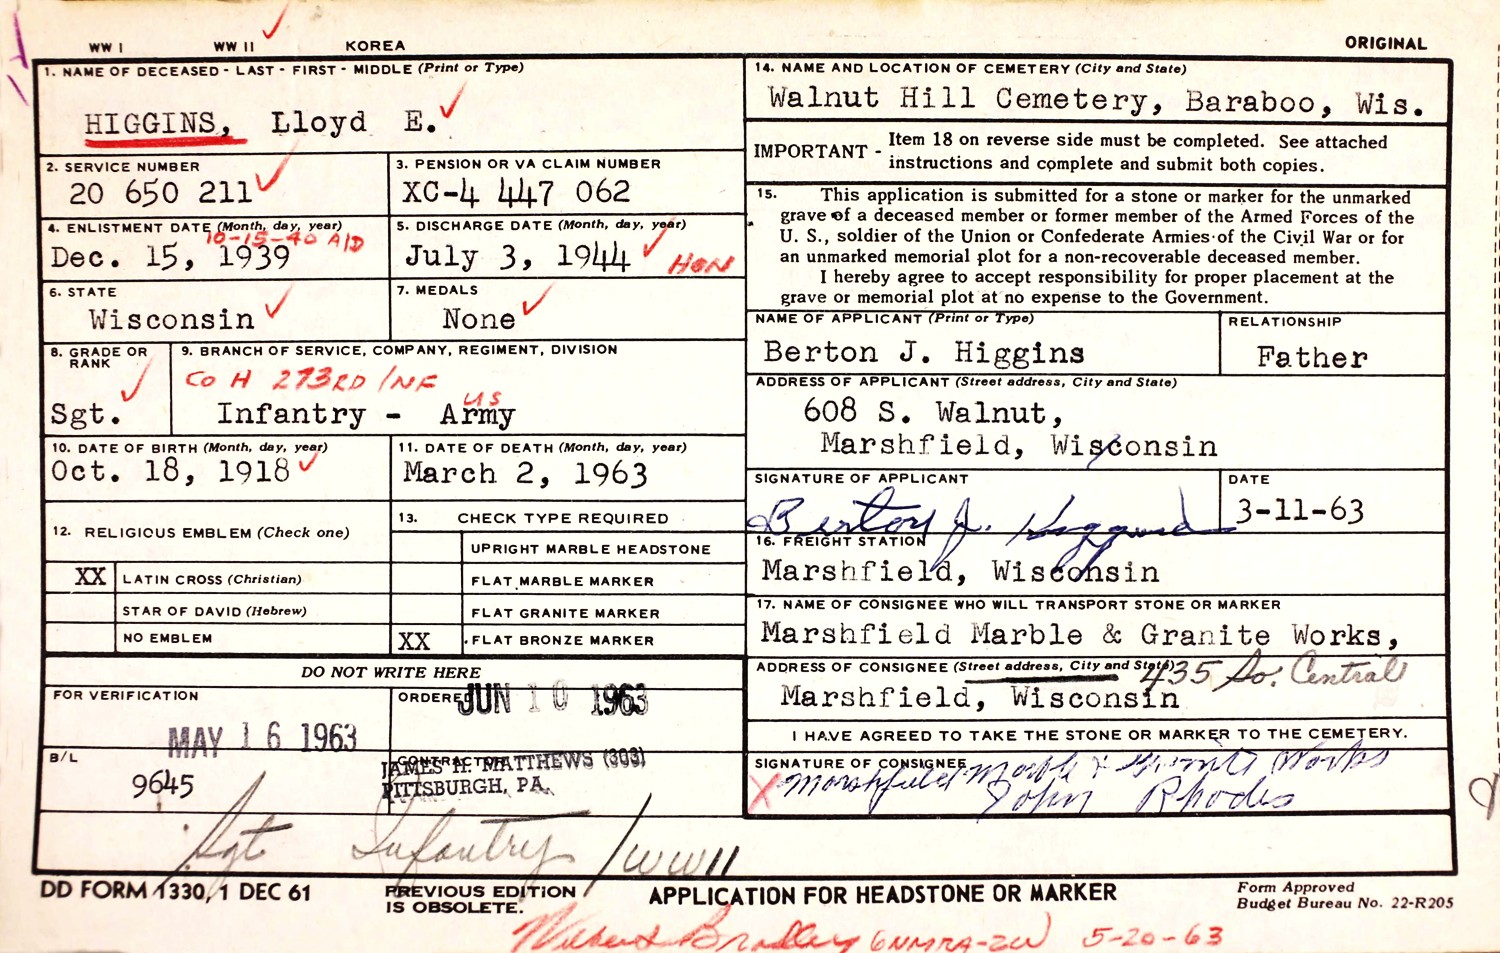 WW I WW II KOREA ORIGINAL
1. NAME OF DECEASED - LAST - FIRST - MIDDLE (Print or Type)
HIGGINS, Lloyd E.
2. SERVICE NUMBER
20 650 211
3. PENSION OR VA CLAIM NUMBER
XC-4 447 062
4. ENLISTMENT DATE (Month, day, year)
10-15-40 A/D
Dec. 15, 1939
5. DISCHARGE DATE (Month, day, year)
July 3, 1944 HON
6. STATE
Wisconsin
7. MEDALS
None
8. GRADE OR
RANK
Sgt.
9. BRANCH OF SERVICE, COMPANY, REGIMENT, DIVISION
Co H 273RD INF
US
Infantry - Army
10. DATE OF BIRTH (Month, day, year)
Oct. 18, 1918
11. DATE OF DEATH (Month, day, year)
March 2, 1963
12. RELIGIOUS EMBLEM (Check one)
XX LATIN CROSS (Christian)
STAR OF DAVID (Hebrew)
NO EMBLEM
13. CHECK TYPE REQUIRED
UPRIGHT MARBLE HEADSTONE
FLAT MARBLE MARKER
FLAT GRANITE MARKER
XX FLAT BRONZE MARKER
DO NOT WRITE HERE
FOR VERIFICATION
MAY 16 1963
ORDERED
JUN 10 1963
B/L
9645
CONTRACTOR
JAMES H. MATTHEWS (303)
PITTSBURGH, PA.
14. NAME AND LOCATION OF CEMETERY (City and State)
Walnut Hill Cemetery, Baraboo, Wis.
IMPORTANT - Item 18 on reverse side must be completed. See attached
instructions and complete and submit both copies.
15. This application is submitted for a stone or marker for the unmarked
grave of a deceased member or former member of the Armed Forces of the
U. S., soldier of the Union or Confederate Armies of the Civil War or for
an unmarked memorial plot for a non-recoverable deceased member.
I hereby agree to accept responsibility for proper placement at the
grave or memorial plot at no expense to the Government.
NAME OF APPLICANT (Print or Type)
Berton J. Higgins
RELATIONSHIP
Father
ADDRESS OF APPLICANT (Street address, City and State)
608 S. Walnut,
Marshfield, Wisconsin
SIGNATURE OF APPLICANT
Berton J. Higgins
DATE
3-11-63
16. FREIGHT STATION
Marshfield, Wisconsin
17. NAME OF CONSIGNEE WHO WILL TRANSPORT STONE OR MARKER
Marshfield Marble & Granite Works,
ADDRESS OF CONSIGNEE (Street address, City and State)
435 So. Central
Marshfield, Wisconsin
I HAVE AGREED TO TAKE THE STONE OR MARKER TO THE CEMETERY.
SIGNATURE OF CONSIGNEE
X Marshfield Marble & Granite Works
John Rhodes
Sgt Infantry / WW II
DD FORM 1330, 1 DEC 61
PREVIOUS EDITION
IS OBSOLETE.
APPLICATION FOR HEADSTONE OR MARKER
Form Approved
Budget Bureau No. 22-R205
Bradley 5-20-63